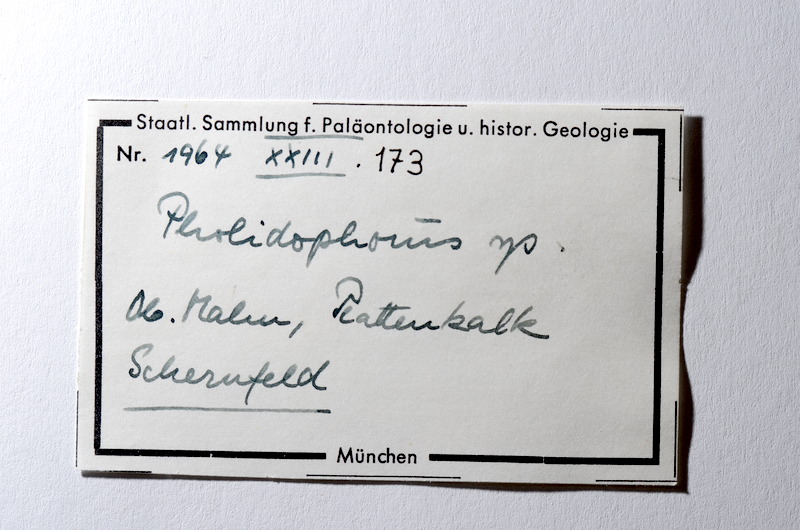 Staatl. Sammlung f. Paläontologie u. histor. Geologie
Nr. 1964 XXIII . 173
Pholidophorus sp.
Ob. Malm, Plattenkalk
Schernfeld
München